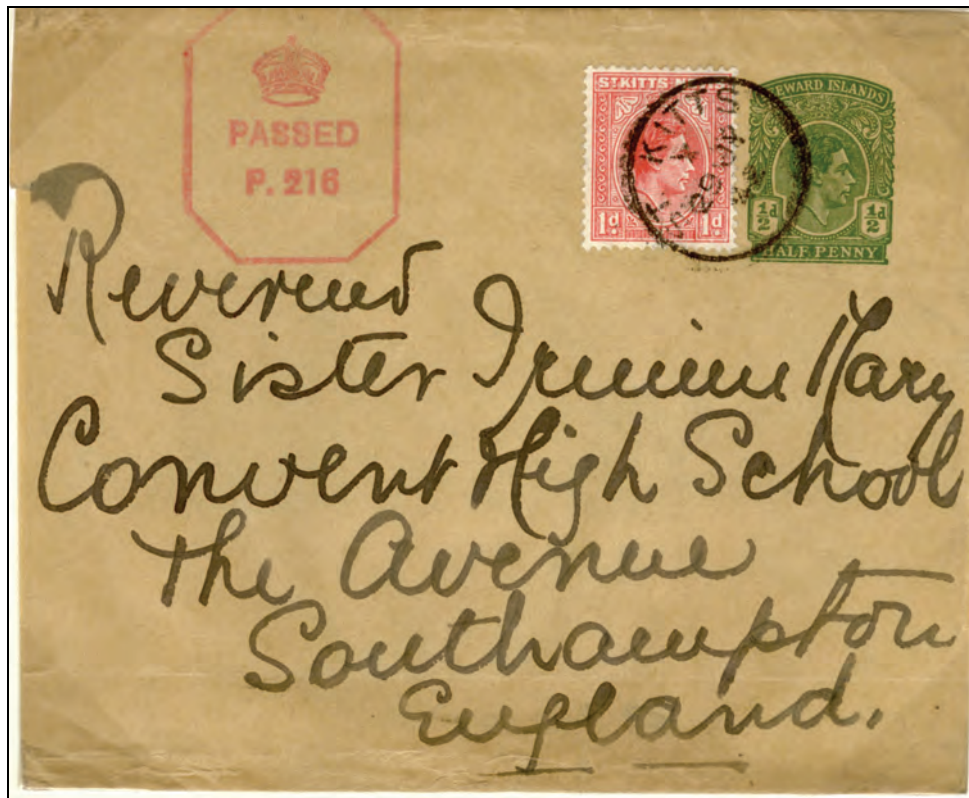 PASSED
P. 216
ST KITTS-N
1d 1d
KITTS
29 JN
EEWARD ISLANDS
½d ½d
HALF PENNY
Reverend
Sister Mary
Convent High School
The Avenue
Southampton
England.